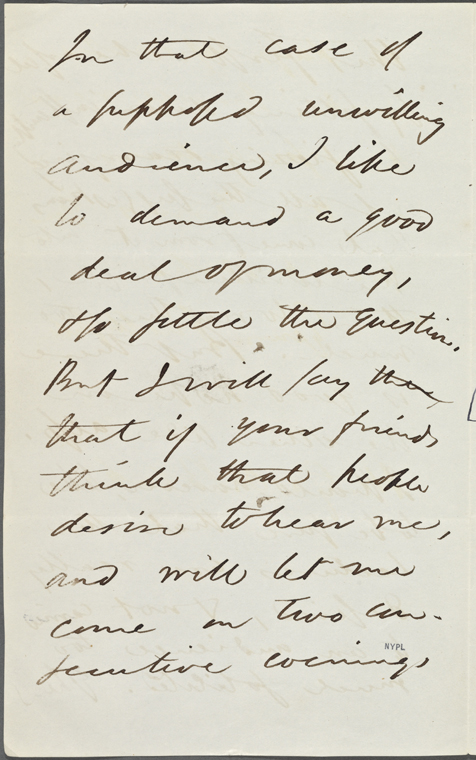 In that case of
a supposed unwilling
audience, I like
to demand a good
deal of money,
& so settle the question.
But I will say then
that if your friends
think that people
desire to hear me,
and will let me
come on two con-
secutive evenings
NYPL